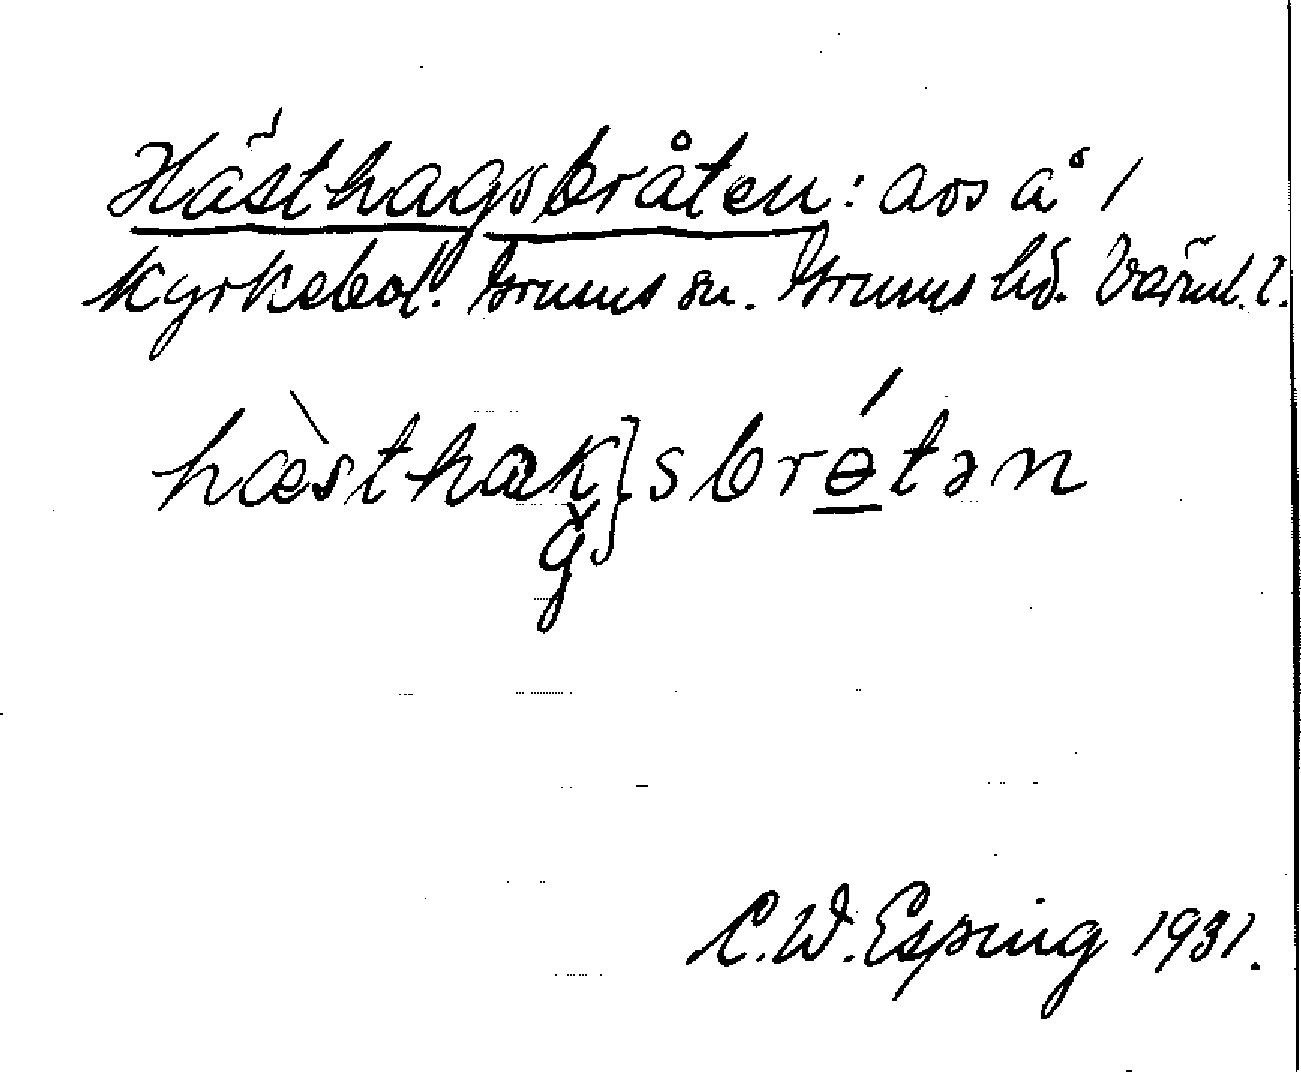 Hästhagsbråten: avs å /
Kyrkebol. Grums sn. Grums hd. Värml. l.
hæ̀sthak}sbrétən
ǧ
C. W. Esping 1931.